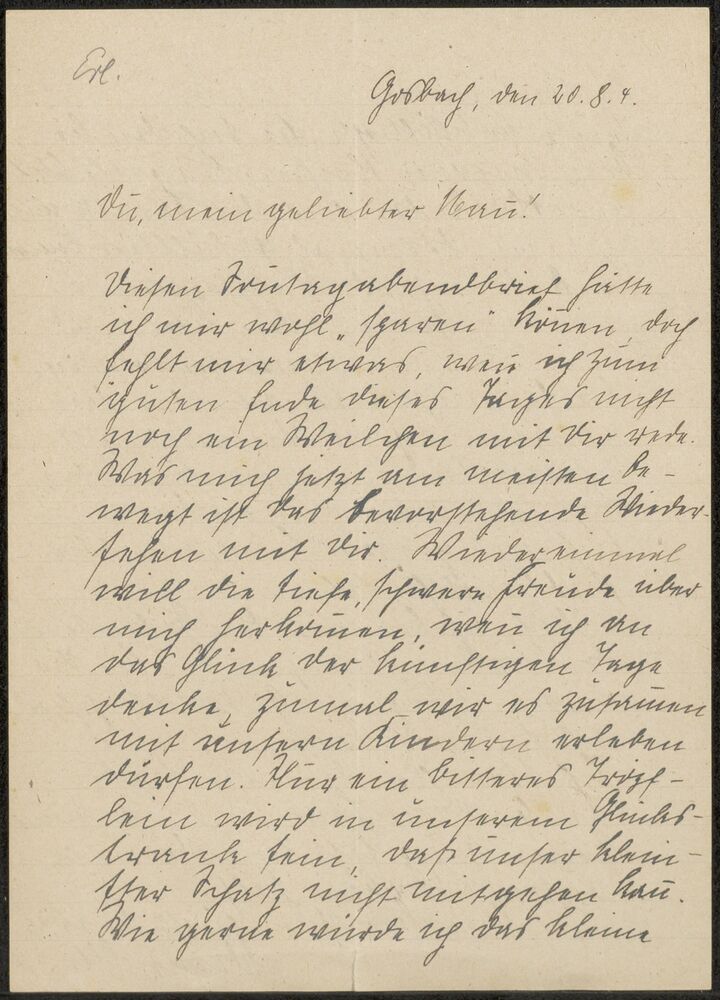 Erl.
Gosbach, den 20.8.4.
Du, mein geliebter Mañ!
Diesen Soñtagabendbrief hätte
ich mir wohl „sparen" köñen, doch
fehlt mir etwas, weñ ich zum
guten Ende dieses Tages nicht
noch ein Weilchen mit Dir rede.
Was mich jetzt am meisten be-
wegt ist das bevorstehende Wieder-
sehen mit Dir. Wiedereinmal
will die tiefe, schwere Freude über
mich herkom̄en, weñ ich an
das Glück der künftigen Tage
denke, zumal wir es zusam̄en
mit unsern Kindern erleben
dürfen. Nur ein bitteres Tröpf-
lein wird in unserem Glücks-
tranke sein, daß unser klein-
ster Schatz nicht mitgehen kañ.
Wie gerne würde ich das kleine